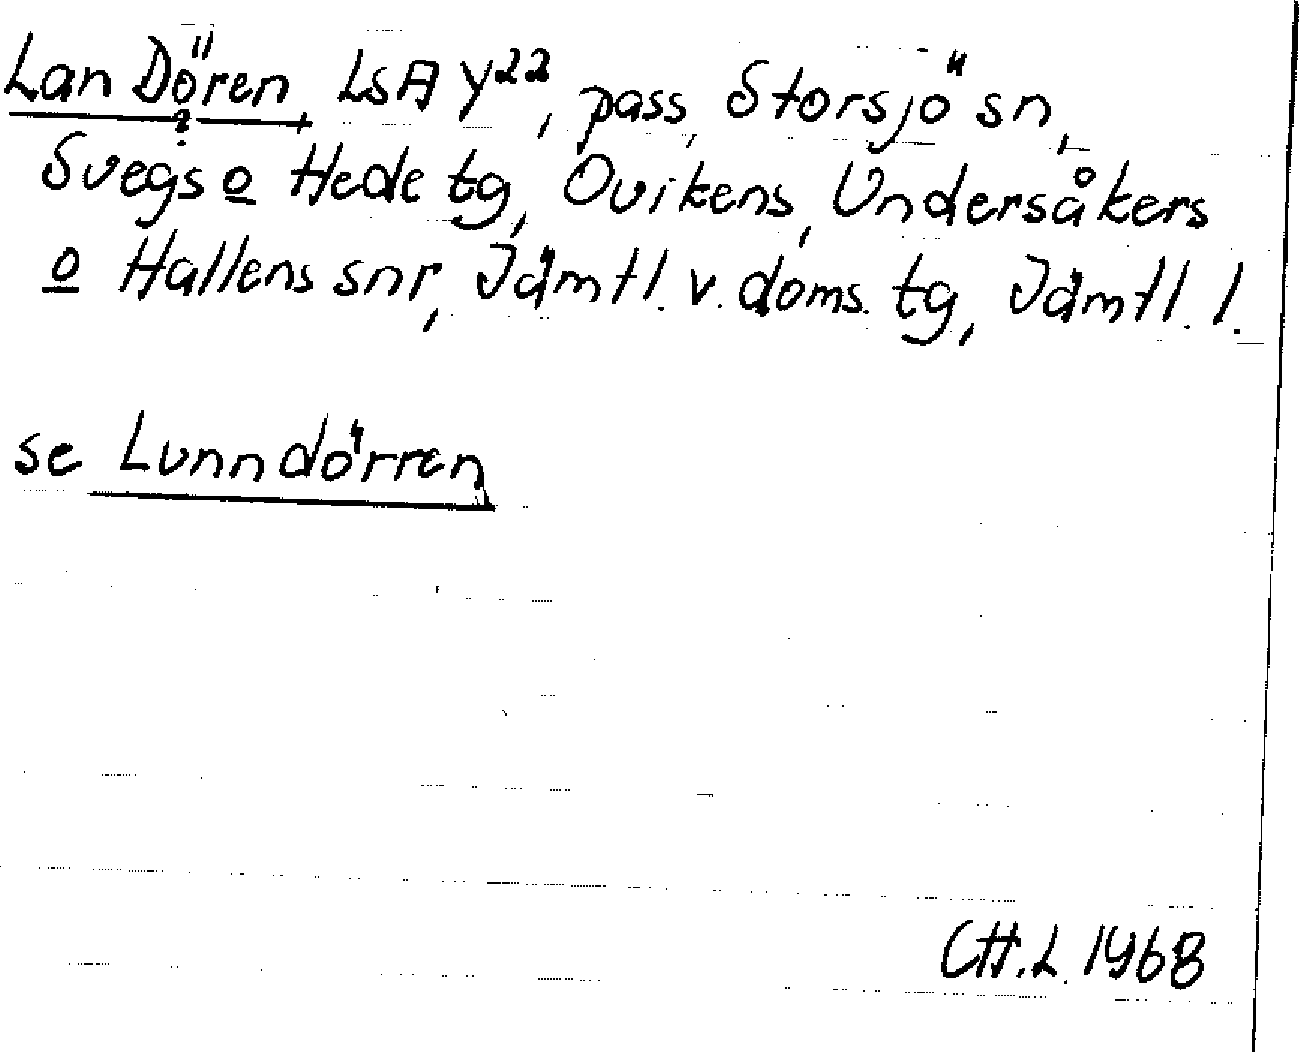 Lan Dören, LSA Y22, pass, Storsjö sn,
?
Svegs o Hede tg, Ovikens, Undersåkers
o Hallens snr, Jämtl. v. doms. tg, Jämtl. l.
se Lunndörren
CH.L. 1968